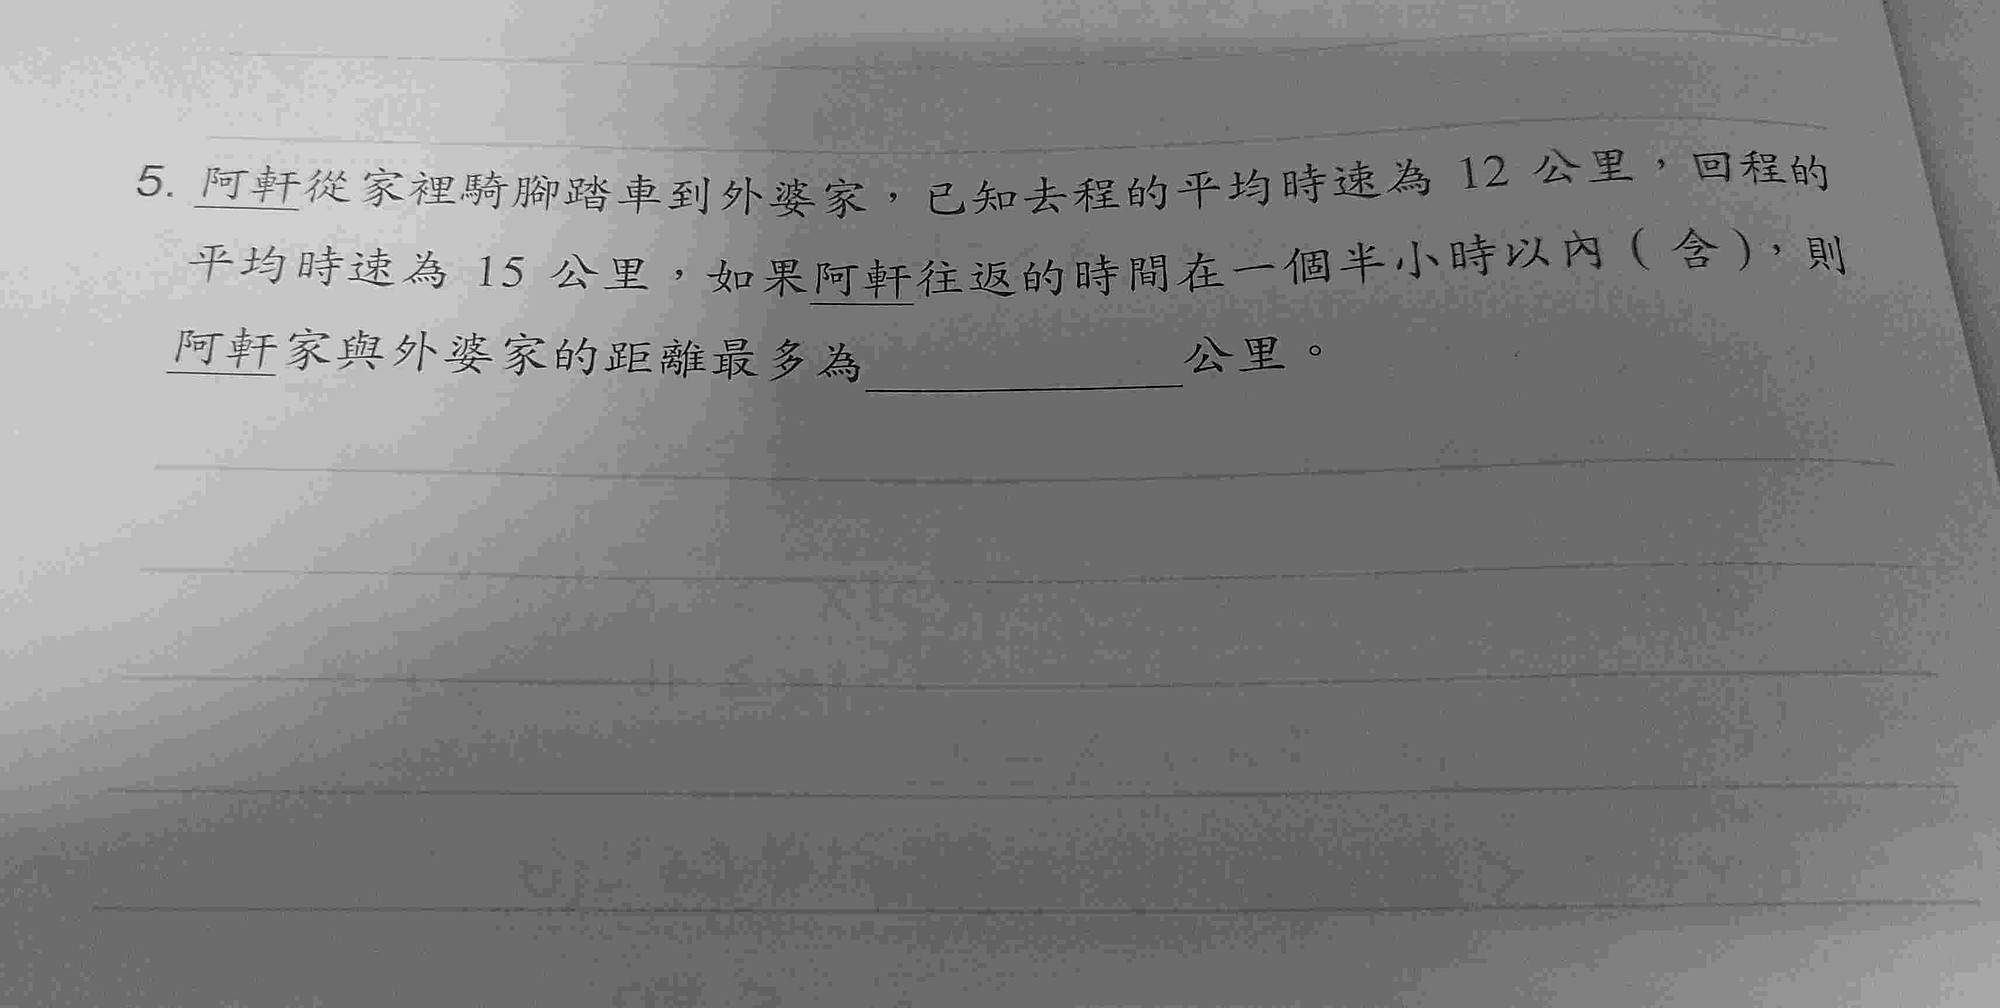 5. 阿軒從家裡騎腳踏車到外婆家，已知去程的平均時速為 12 公里，回程的
平均時速為 15 公里，如果阿軒往返的時間在一個半小時以內（含），則
阿軒家與外婆家的距離最多為__________公里。